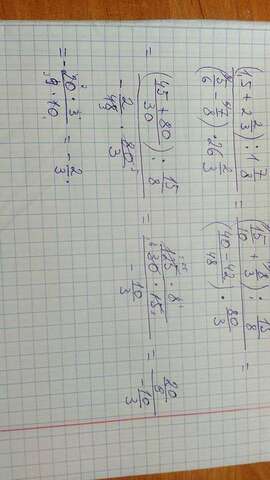 (15 + 2 2/3) : 1 7/8 / (5/6 - 47/8) · 26 2/3 = (15/10 + 8/3) : 15/8 / (40 - 42 / 48) · 80/3 =
= (45 + 80 / 30) : 15/8 / - 2/48 · 80/3 = 125 · 8 / 30 · 15 / - 10/3 = 20/8 / -10/3
= - 20 · 3 / 9 · 10 = - 2/3.